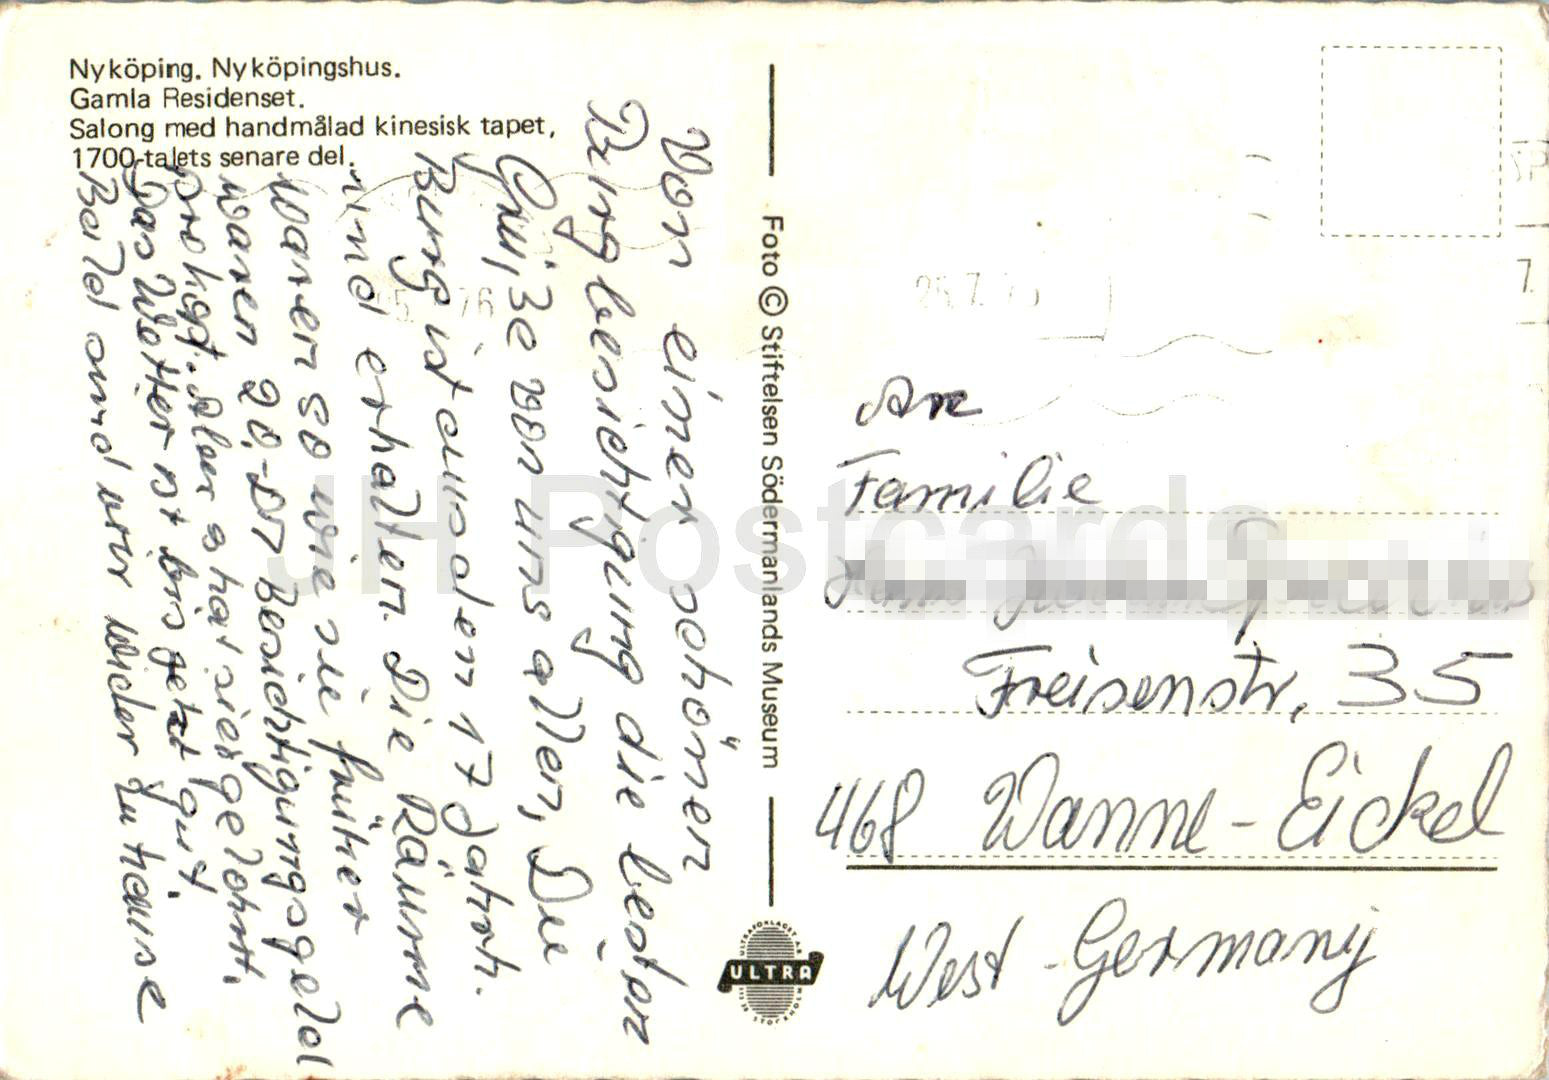 Nyköping. Nyköpingshus.
Gamla Residenset.
Salong med handmålad kinesisk tapet,
1700-talets senare del.
Von einer schönen
Burgbesichtigung die besten
Grüße von uns allen, Die
Burg ist aus dem 17 Jahrh.
und erhalten. Die Räume
waren so wie sie früher
waren 20,-DM Besichtigungsgeld
Aber s hat sie gelohnt.
Das Wetter ist bis jetzt gut.
Bald sind wir wider zu hause
Foto © Stiftelsen Södermanlands Museum
ULTRA
25.7.76
An
Familie
Freisenstr, 35
468 Wanne-Eickel
West-Germany
JH Postcards